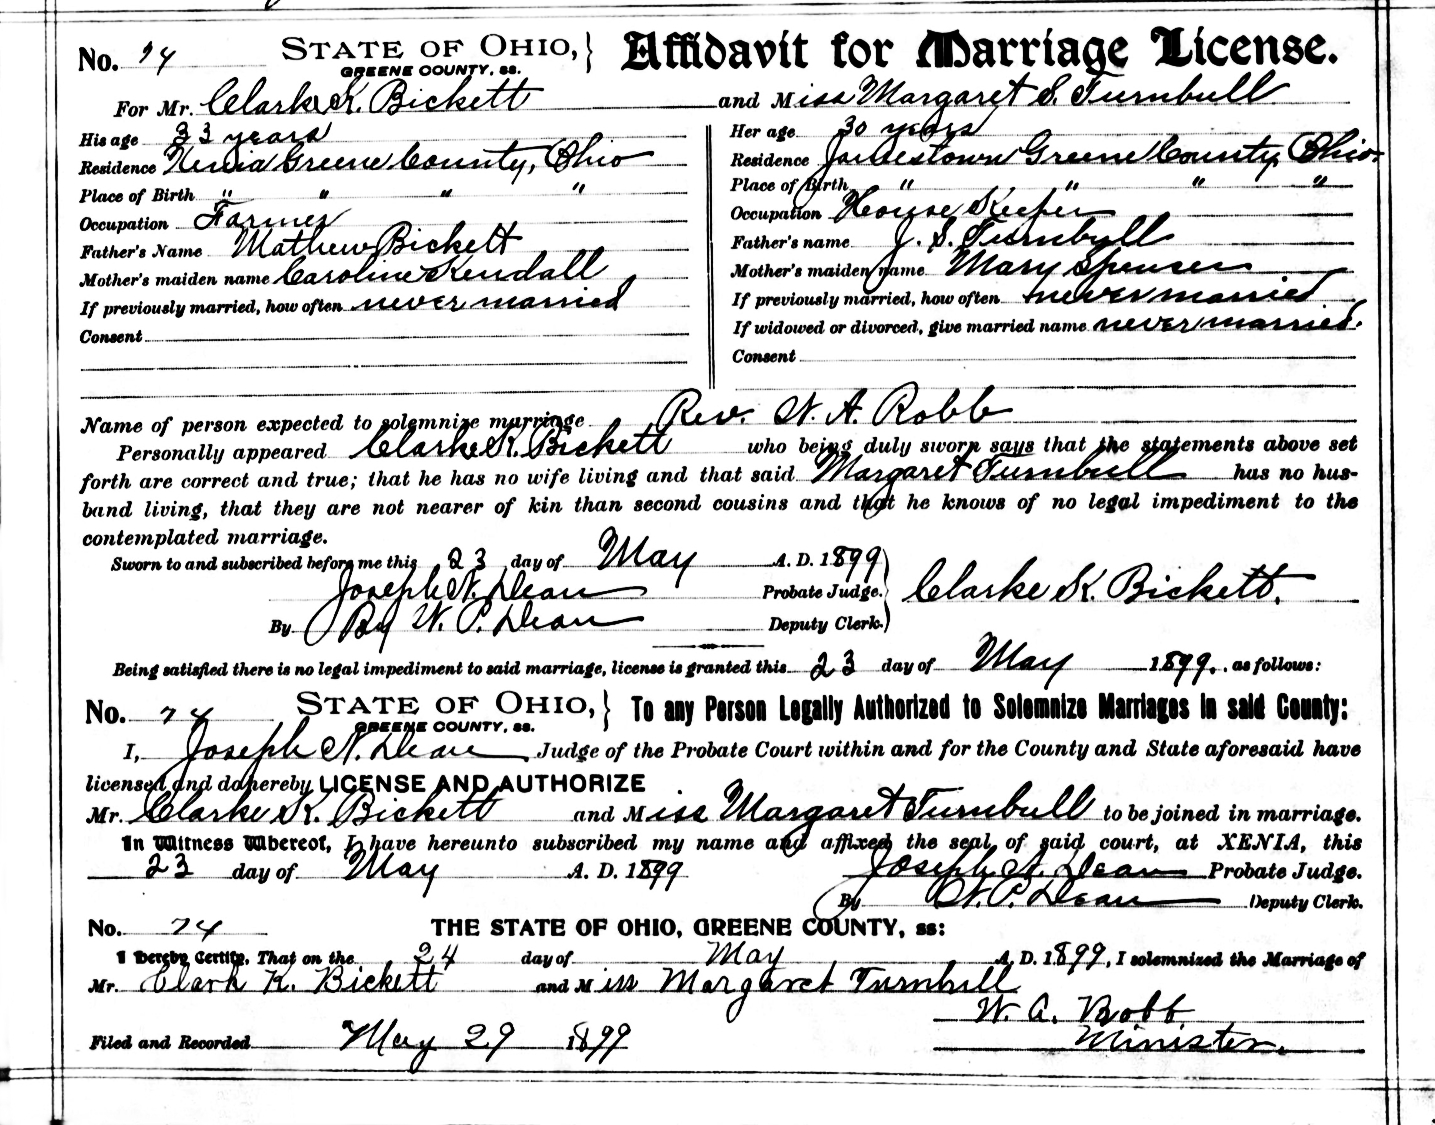 No. 74 STATE OF OHIO, GREENE COUNTY, ss. } Affidavit for Marriage License.
For Mr. Clarke K. Bickett and Miss Margaret S. Turnbull
His age 33 years
Residence Xenia Greene County, Ohio
Place of Birth " " " "
Occupation Farmer
Father's Name Mathew Bickett
Mother's maiden name Caroline Kendall
If previously married, how often never married
Consent
Her age 30 years
Residence Jamestown Greene County, Ohio.
Place of Birth " " " "
Occupation House Keeper
Father's name J. S. Turnbull
Mother's maiden name Mary Spenser
If previously married, how often never married
If widowed or divorced, give married name never married.
Consent
Name of person expected to solemnize marriage Rev. W. A. Robb
Personally appeared Clarke K. Bickett who being duly sworn says that the statements above set
forth are correct and true; that he has no wife living and that said Margaret Turnbull has no hus-
band living, that they are not nearer of kin than second cousins and that he knows of no legal impediment to the
contemplated marriage.
Sworn to and subscribed before me this 23 day of May A. D. 1899
Joseph N. Dean Probate Judge. } Clarke K. Bickett.
By By W. P. Dean Deputy Clerk.
Being satisfied there is no legal impediment to said marriage, license is granted this 23 day of May 1899, as follows:
No. 74 STATE OF OHIO, GREENE COUNTY, ss. } To any Person Legally Authorized to Solemnize Marriages in said County:
I, Joseph N. Dean Judge of the Probate Court within and for the County and State aforesaid have
licensed and do hereby LICENSE AND AUTHORIZE
Mr. Clarke K. Bickett and Miss Margaret Turnbull to be joined in marriage.
In Witness Whereof, I have hereunto subscribed my name and affixed the seal of said court, at XENIA, this
23 day of May A. D. 1899 Joseph N. Dean Probate Judge.
By W. P. Dean Deputy Clerk.
No. 74 THE STATE OF OHIO, GREENE COUNTY, ss:
I Hereby Certify, That on the 24 day of May A. D. 1899, I solemnized the Marriage of
Mr. Clark K. Bickett and Miss Margaret Turnbull
W. A. Robb
Filed and Recorded May 29 1899 Minister.